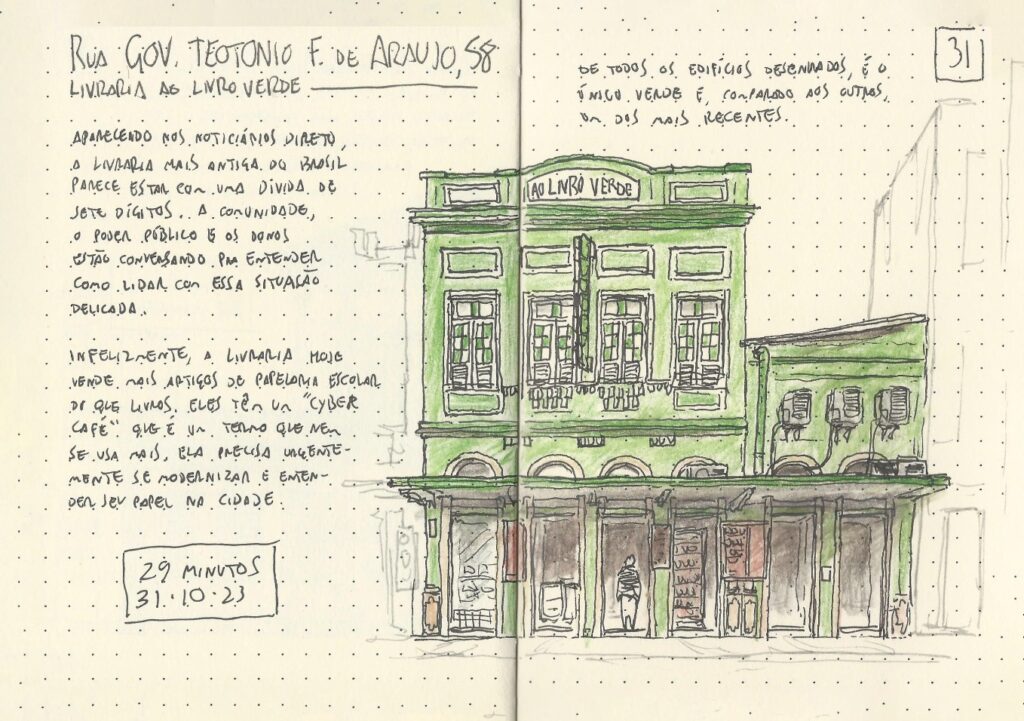 RUA GOV. TEOTONIO F. DE ARAUJO, 58
LIVRARIA AO LIVRO VERDE
APARECENDO NOS NOTICIÁRIOS DIRETO,
A LIVRARIA MAIS ANTIGA DO BRASIL
PARECE ESTAR COM UMA DÍVIDA DE
SETE DÍGITOS. A COMUNIDADE,
O PODER PÚBLICO E OS DONOS
ESTÃO CONVERSANDO PRA ENTENDER
COMO LIDAR COM ESSA SITUAÇÃO
DELICADA.
INFELIZMENTE, A LIVRARIA HOJE
VENDE MAIS ARTIGOS DE PAPELARIA ESCOLAR
DO QUE LIVROS. ELES TÊM UM "CYBER
CAFÉ" QUE É UM TERMO QUE NEM
SE USA MAIS. ELA PRECISA URGENTE-
MENTE SE MODERNIZAR E ENTEN-
DER SEU PAPEL NA CIDADE.
29 MINUTOS
31.10.23
DE TODOS OS EDIFÍCIOS DESENHADOS, É O
ÚNICO VERDE E, COMPARADO AOS OUTROS,
UM DOS MAIS RECENTES.
31
AO LIVRO VERDE